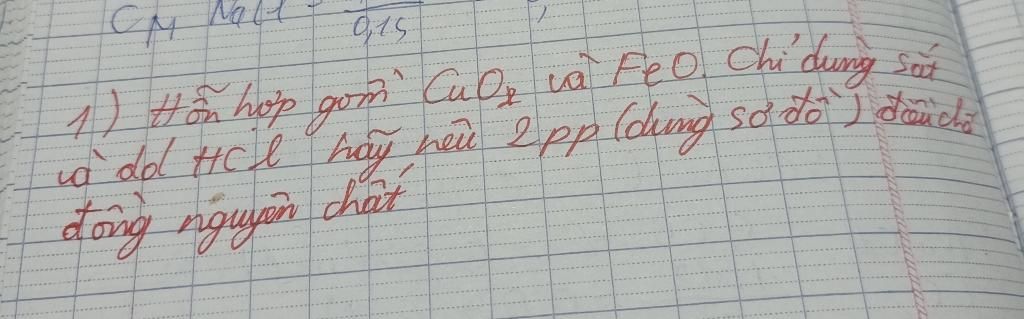 CM NaCl = / 0,15
1) Hỗn hợp gồm CuO và FeO. Chỉ dùng sắt
và dd HCl hãy nêu 2pp (dùng sơ đồ) điều chế
đồng nguyên chất